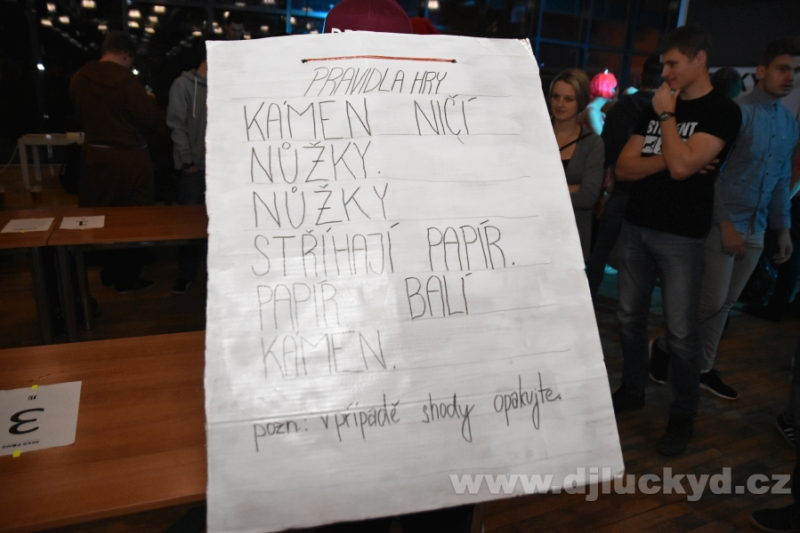 PRAVIDLA HRY
KÁMEN NIČÍ
NŮŽKY.
NŮŽKY
STŘÍHAJÍ PAPÍR.
PAPÍR BALÍ
KÁMEN.
pozn.: v případě shody opakujte.
3
www.djluckyd.cz